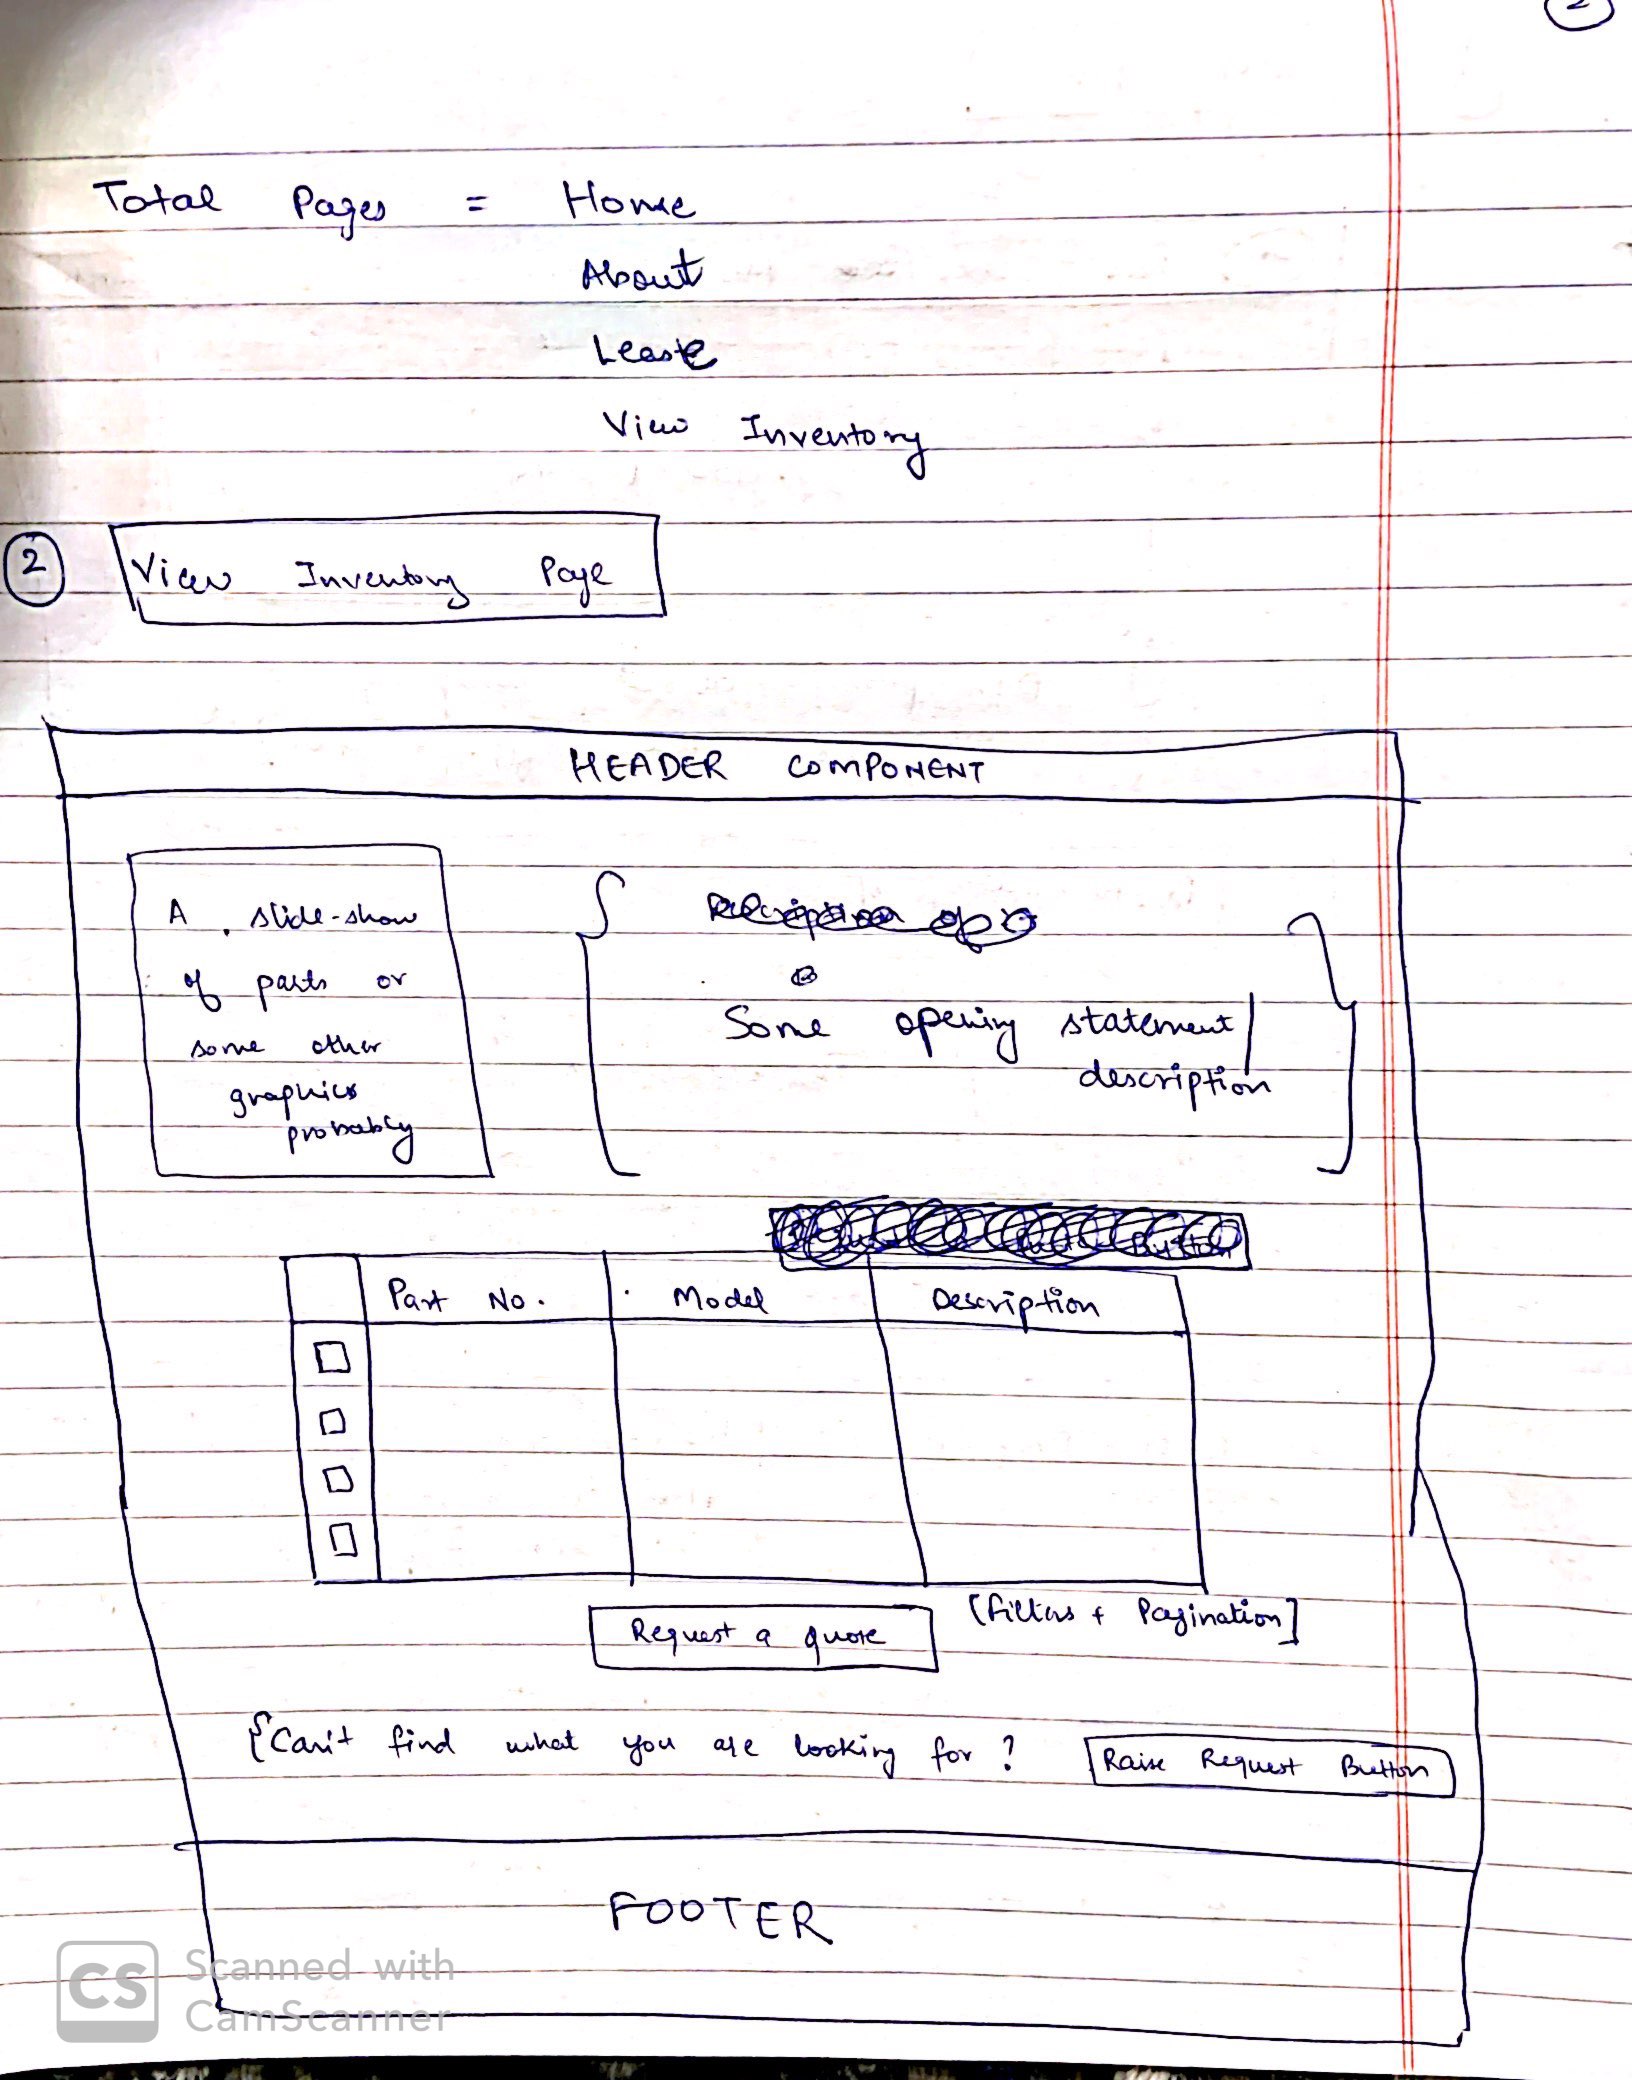 2
Total Pages = Home
About
Lease
View Inventory
2 View Inventory Page
HEADER COMPONENT
A slide-show
of parts or
some other
graphics
probably
Some opening statement/
description
Part No. Model Description
Request a quote
[Filters + Pagination]
{Can't find what you are looking for ? Raise Request Button
FOOTER
CS Scanned with
CamScanner